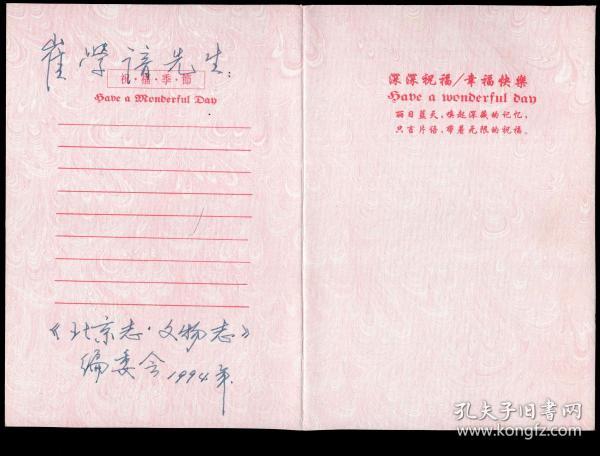 崔学谙先生：
祝·福·季·節
Have a Wonderful Day
《北京志·文物志》
编委会 1994年.
深深祝福/幸福快樂
Have a wonderful day
丽日蓝天，唤起深藏的记忆，
只言片语，带着无限的祝福。
孔夫子旧书网
www.kongfz.com